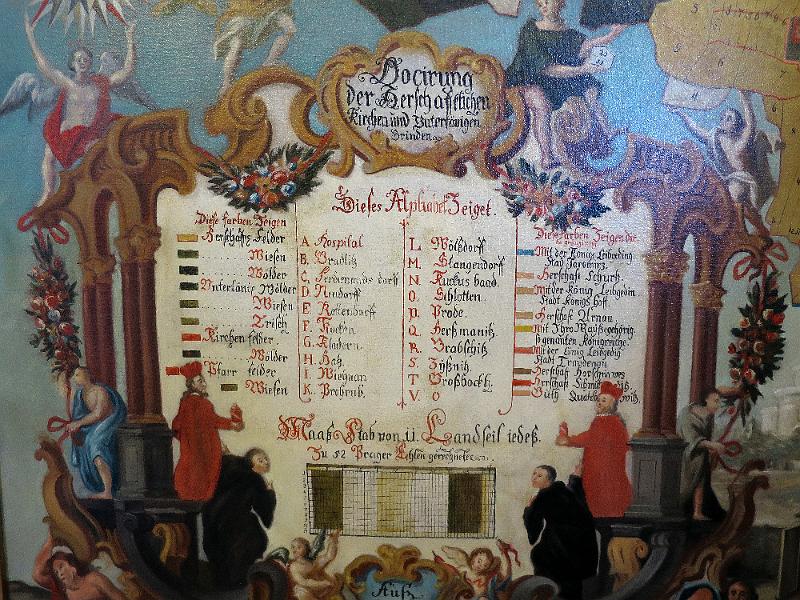 Docirung
der Herschaftlichen
Kirchen und Unterthänigen
Grinden
Dieses Alphabet Zeiget.
Diese farben Zeigen
Herschafts Felder
Wiesen
Wölder
Unterthänig Wölder
Wiesen
Trisch
Kirchen felder
Wölder
Pfarr felder
Wiesen
A Hospital
B. Gradlitz
C. Ferdinands dorff
D. Neudorff
E. Kottendorff
F. Kucken
G. Kladern
H. Hatz
I. Wiegnan
K. Prohrub.
L. Wölsdorff
M. Stangendorff
N. Kuckus baad
O. Schlotten.
P. Prode.
Q. Hermanitz
R. Brabschitz
S. Zysnitz
T. Großbockh
V. O
Diese Farben Zeiges die
Mit der König Leibgeding
Stad Jaromirz
Herschaft Schurtz
Mit der König Leibgedin
Stadt Königs Hoff
Herschaft Arnau
Mit der König Leibgedig
Stadt
Herschaft
Herschaft
Guth
Maaß Stab von 11 Landseil iedeß.
Zu 52 Prager Ehlen gerechnet
Auß